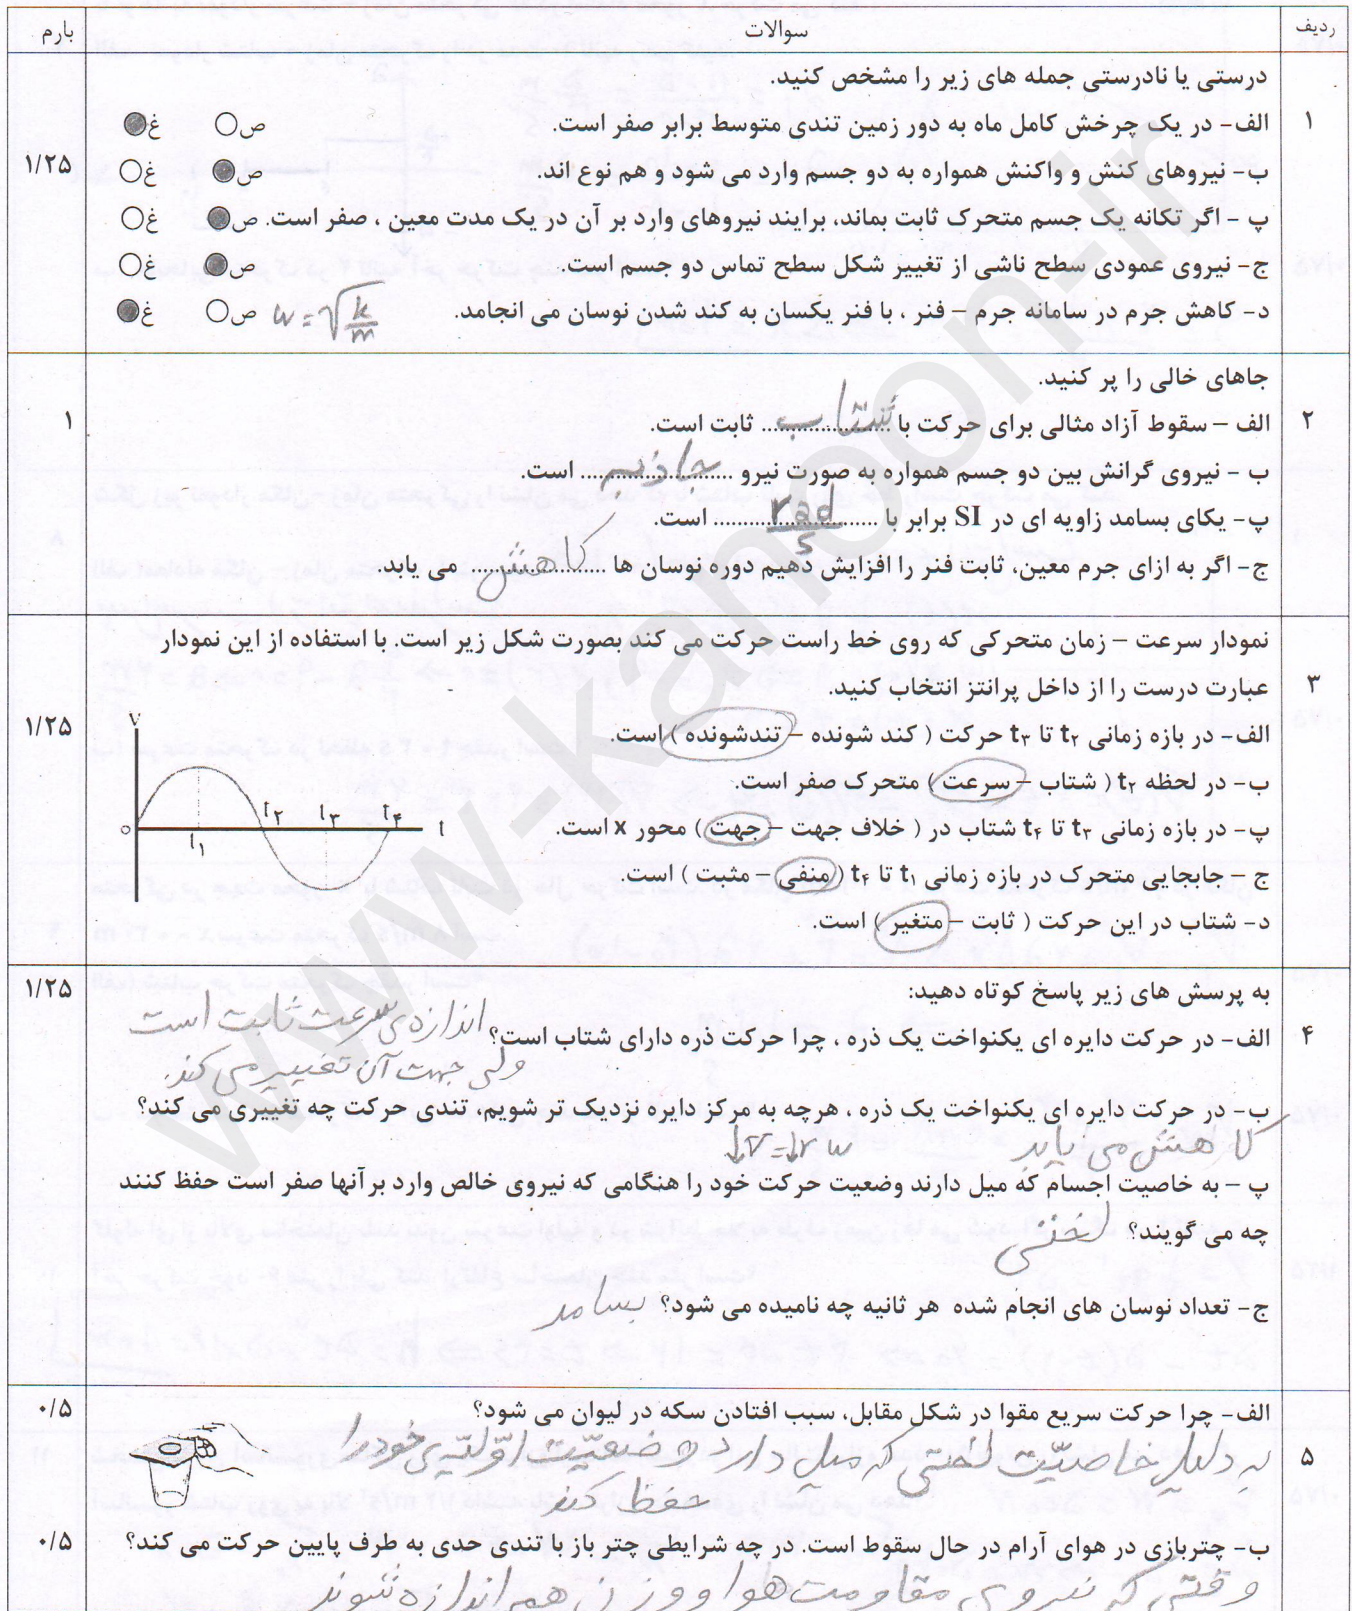 ردیف
سوالات
بارم
درستی یا نادرستی جمله های زیر را مشخص کنید.
۱
الف- در یک چرخش کامل ماه به دور زمین تندی متوسط برابر صفر است. ص غ
ب- نیروهای کنش و واکنش همواره به دو جسم وارد می شود و هم نوع اند. ص غ
۱/۲۵
پ - اگر تکانه یک جسم متحرک ثابت بماند، برایند نیروهای وارد بر آن در یک مدت معین ، صفر است. ص غ
ج- نیروی عمودی سطح ناشی از تغییر شکل سطح تماس دو جسم است. ص غ
د- کاهش جرم در سامانه جرم – فنر ، با فنر یکسان به کند شدن نوسان می انجامد. ω = √k/m ص غ
جاهای خالی را پر کنید.
۲
الف – سقوط آزاد مثالی برای حرکت با شتاب ثابت است.
۱
ب - نیروی گرانش بین دو جسم همواره به صورت نیرو جاذبه است.
پ- یکای بسامد زاویه ای در SI برابر با rad/s است.
ج- اگر به ازای جرم معین، ثابت فنر را افزایش دهیم دوره نوسان ها کاهش می یابد.
نمودار سرعت – زمان متحرکی که روی خط راست حرکت می کند بصورت شکل زیر است. با استفاده از این نمودار
۳
عبارت درست را از داخل پرانتز انتخاب کنید.
۱/۲۵
الف- در بازه زمانی t۲ تا t۳ حرکت ( کند شونده – تندشونده ) است.
ب- در لحظه t۲ ( شتاب – سرعت ) متحرک صفر است.
پ- در بازه زمانی t۳ تا t۴ شتاب در ( خلاف جهت – جهت ) محور x است.
ج – جابجایی متحرک در بازه زمانی t۱ تا t۴ ( منفی – مثبت ) است.
د- شتاب در این حرکت ( ثابت – متغیر ) است.
v
o
t۱
t۲
t۳
t۴
t
به پرسش های زیر پاسخ کوتاه دهید:
۱/۲۵
۴
الف- در حرکت دایره ای یکنواخت یک ذره ، چرا حرکت ذره دارای شتاب است؟ اندازه ی سرعت ثابت است
ولی جهت آن تغییر می کند.
ب- در حرکت دایره ای یکنواخت یک ذره ، هرچه به مرکز دایره نزدیک تر شویم، تندی حرکت چه تغییری می کند؟
کاهش می یابد ↓v = ↓rω
پ – به خاصیت اجسام که میل دارند وضعیت حرکت خود را هنگامی که نیروی خالص وارد بر آنها صفر است حفظ کنند
چه می گویند؟ لختی
ج- تعداد نوسان های انجام شده هر ثانیه چه نامیده می شود؟ بسامد
۵
الف- چرا حرکت سریع مقوا در شکل مقابل، سبب افتادن سکه در لیوان می شود؟
۰/۵
به دلیل خاصیت لختی که میل دارد وضعیت اولیه ی خود را
حفظ کند
ب- چتربازی در هوای آرام در حال سقوط است. در چه شرایطی چتر باز با تندی حدی به طرف پایین حرکت می کند؟
۰/۵
وقتی که نیروی مقاومت هوا و وزن هم اندازه شوند
www-kanoon-ir